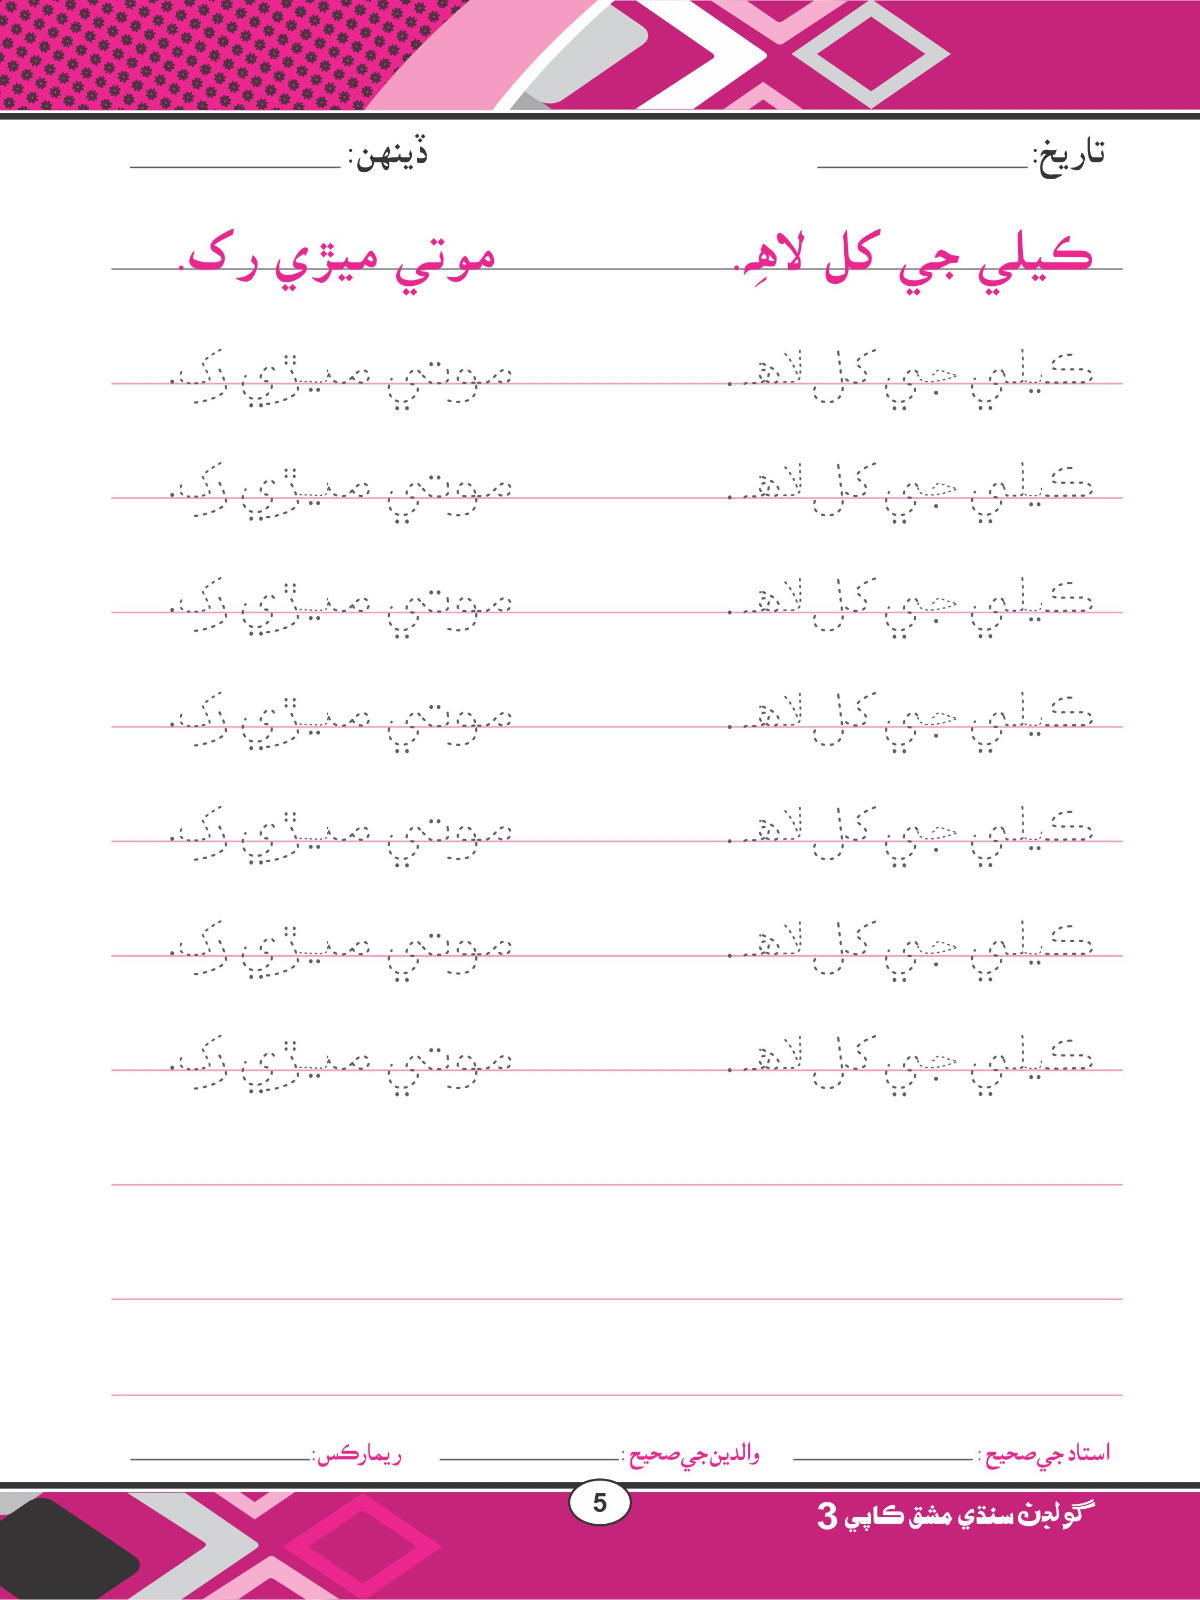 تاريخ: ڏينهن:
ڪيلي جي کل لاهِہ. موتي ميڙي رک.
ڪيلي جي کل لاهہ. موتي ميڙي رک.
ڪيلي جي کل لاهہ. موتي ميڙي رک.
ڪيلي جي کل لاهہ. موتي ميڙي رک.
ڪيلي جي کل لاهہ. موتي ميڙي رک.
ڪيلي جي کل لاهہ. موتي ميڙي رک.
ڪيلي جي کل لاهہ. موتي ميڙي رک.
ڪيلي جي کل لاهہ. موتي ميڙي رک.
استاد جي صحيح: والدين جي صحيح: ريمارڪس:
5
گولڊن سنڌي مشق ڪاپي 3